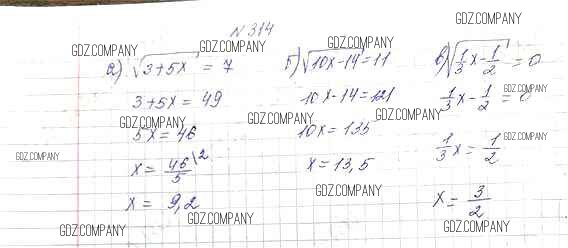 N 314
а) √3+5x = 7
3+5x = 49
5x = 46
x = 46/5 \2
x = 9,2
б) √10x-14 = 11
10x-14 = 121
10x = 135
x = 13,5
в) √1/3x - 1/2 = 0
1/3x - 1/2 = 0
1/3x = 1/2
x = 3/2
GDZ.COMPANY
GDZ.COMPANY
GDZ.COMPANY
GDZ.COMPANY
GDZ.COMPANY
GDZ.COMPANY
GDZ.COMPANY
GDZ.COMPANY
GDZ.COMPANY
GDZ.COMPANY
GDZ.COMPANY
GDZ.COMPANY
GDZ.COMPANY
GDZ.COMPANY